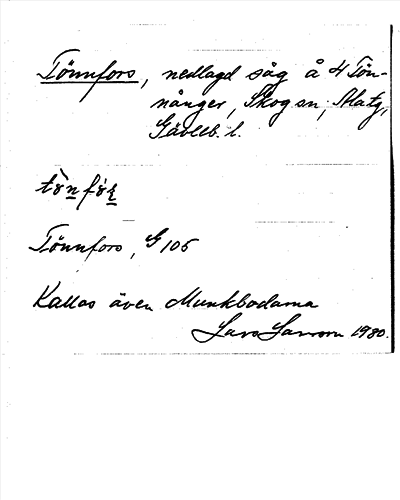 Tönnfors, nedlagd såg å 4 Tön-
nånger, Skog sn,
Gävleb. l.
tö̀nfo̩ṣ
Tönnfors, G 105
Kallas även Munkbodarna
Lars Larsson 1980.